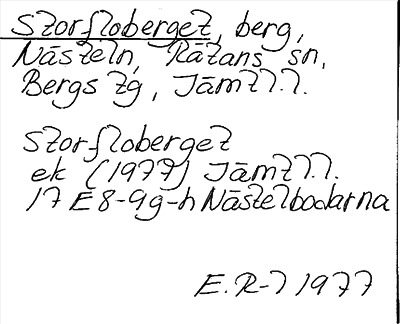 Storfloberget, berg,
Nästeln, Rätans sn,
Bergs tg, Jämtl.l.
Storfloberget
ek (1977) Jämtl.l.
17E8-9g-h Nästelbodarna
E.R-l 1977